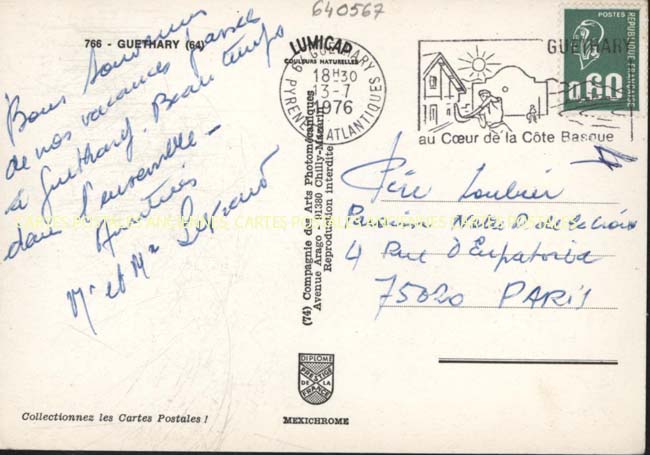 640567
766 - GUETHARY (64)
LUMICAP
COULEURS NATURELLES
64 GUETHARY
18H30
13-7
1976
PYRENEES ATLANTIQUES
GUETHARY
au Cœur de la Côte Basque
POSTES
0,60
REPUBLIQUE FRANÇAISE
Bons souvenirs
de nos vacances passées
à Guethary. Beau temps
dans l'ensemble -
Amitiés
Mr et Me
(74) Compagnie des Arts Photomécaniques
Avenue Arago - 91380 Chilly-Mazarin
Reproduction interdite
Père
4 Rue d'Eupatoria
75020 PARIS
CARTES POSTALES ANCIENNES CARTES POSTALES ANCIENNES CARTES POSTALES ANCIENNES
DIPLOME
PRESTIGE
DE LA
FRANCE
Collectionnez les Cartes Postales !
MEXICHROME